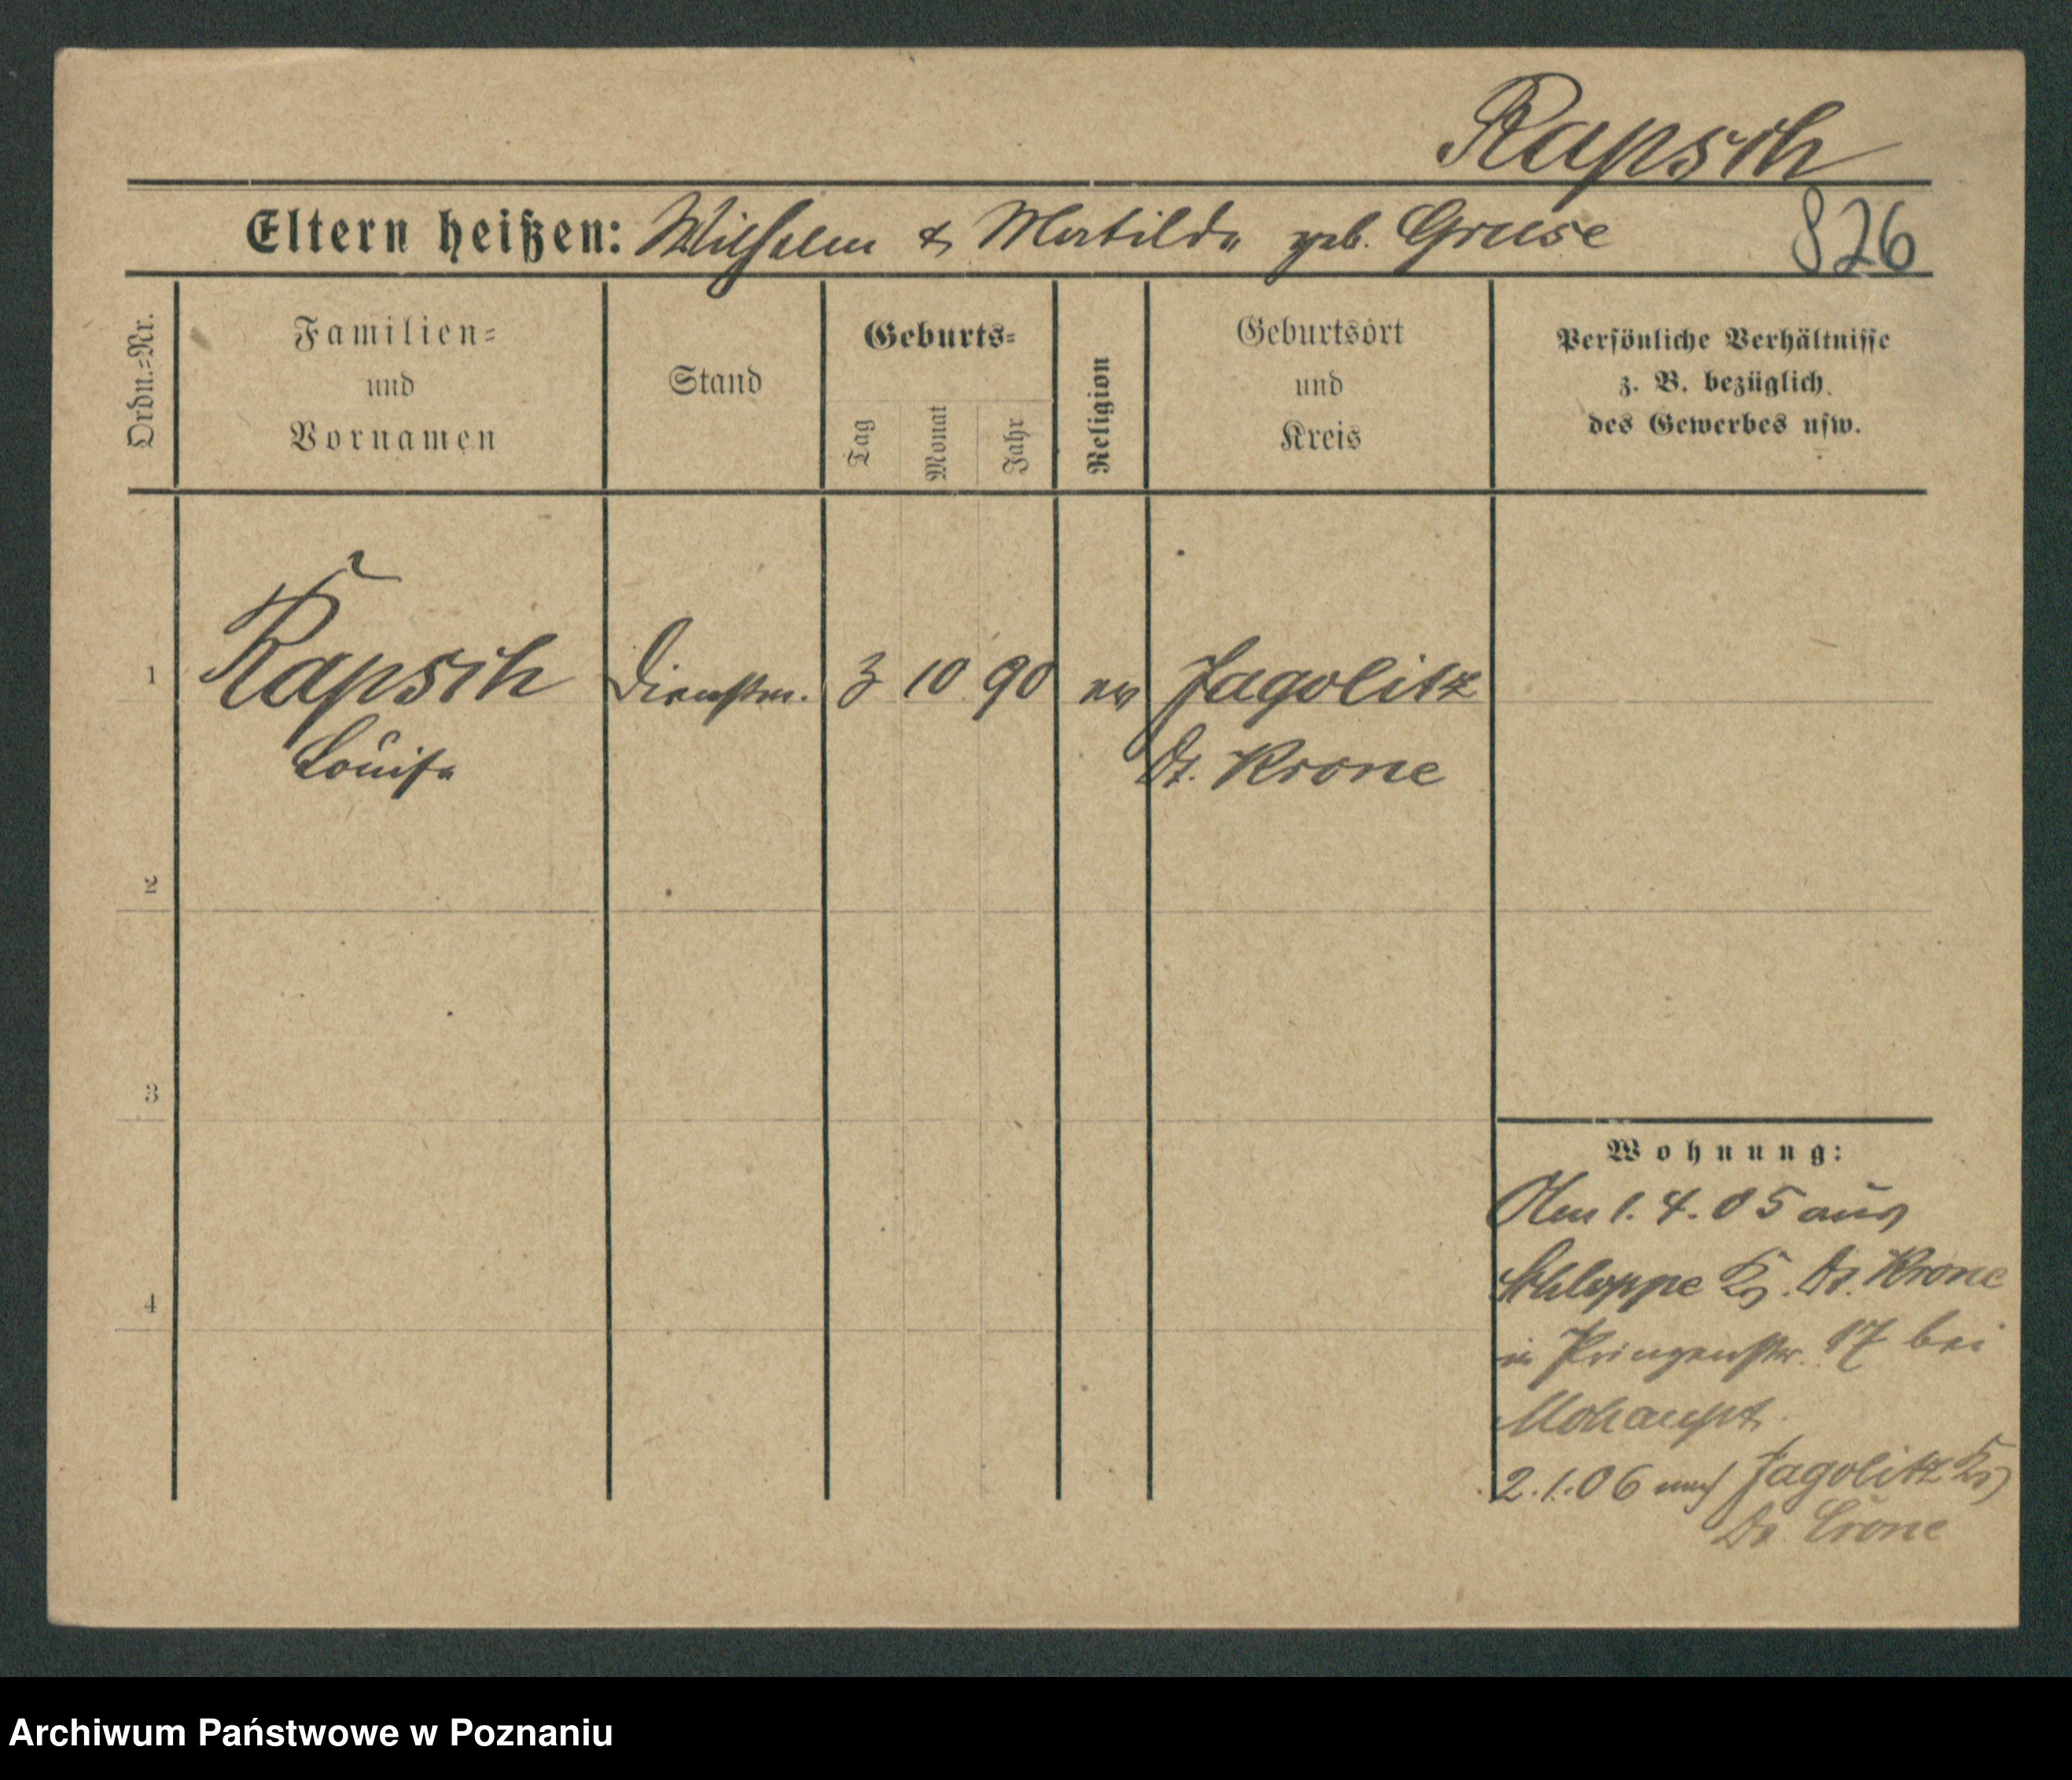 Rapsch
Eltern heißen: Wilhelm & Matilde geb. Gruse 826
Ordn.=Nr.
Familien=
und
Vornamen
Stand
Geburts=
Tag
Monat
Jahr
Religion
Geburtsort
und
Kreis
Persönliche Verhältnisse
z. B. bezüglich
des Gewerbes usw.
1 Rapsch Dienstm. 3 10 90 ev Jagolitz
Louise Dt. Krone
2
3
4
Wohnung:
Am 1. 4. 05 aus
Schloppe Krs. Dt. Krone
in Prinzenstr. 17 bei
Mohaupt.
2.1.06 nach Jagolitz Krs
Dt Crone
Archiwum Państwowe w Poznaniu